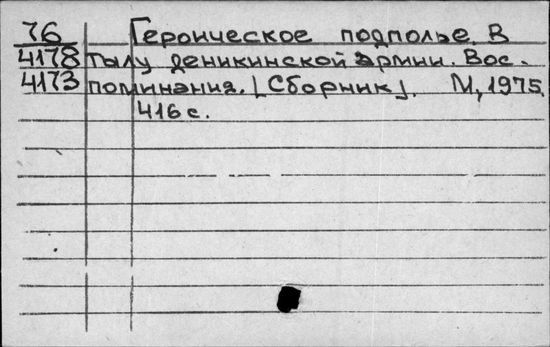 76 Героическое подполье. В
4178 тылу деникинской армии. Вос-
4173 поминания. [Сборник]. М., 1975.
416 с.